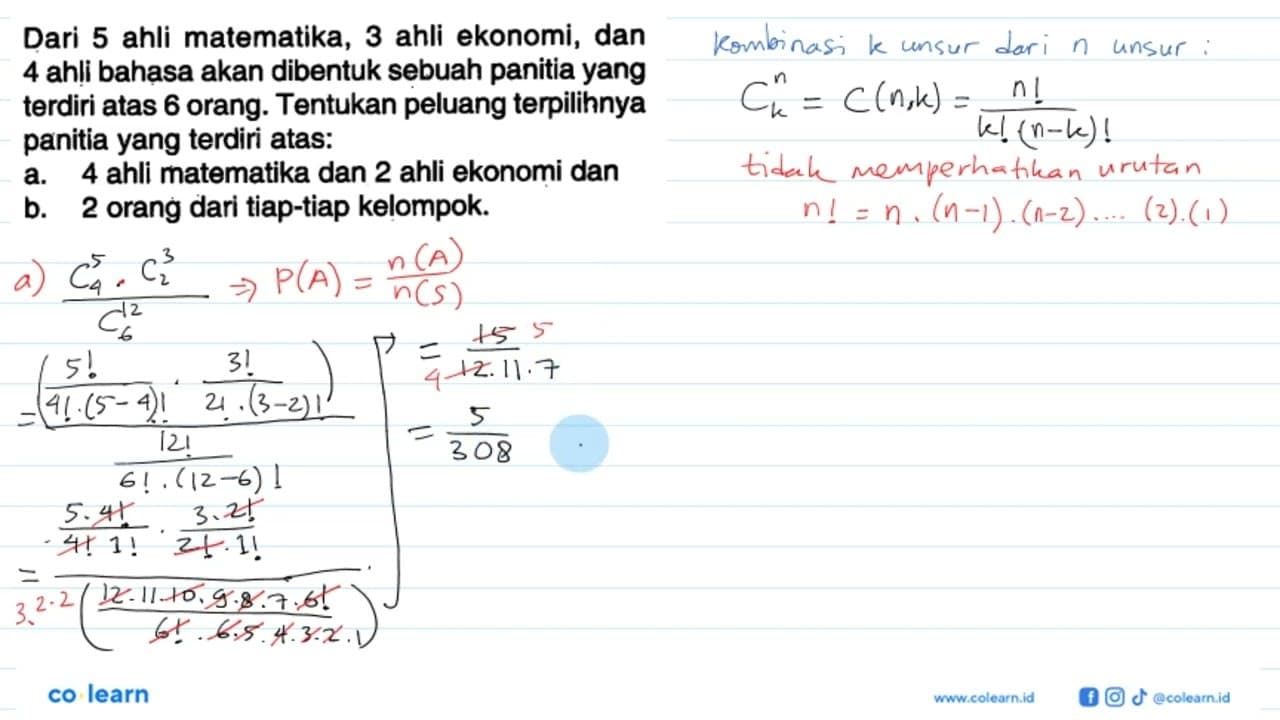 Dari 5 ahli matematika, 3 ahli ekonomi, dan
4 ahli bahasa akan dibentuk sebuah panitia yang
terdiri atas 6 orang. Tentukan peluang terpilihnya
panitia yang terdiri atas:
a. 4 ahli matematika dan 2 ahli ekonomi dan
b. 2 orang dari tiap-tiap kelompok.
kombinasi k unsur dari n unsur :
C^n_k = C(n,k) = n! / k! (n-k)!
tidak memperhatikan urutan
n! = n . (n-1) . (n-2) .... (2).(1)
a) C^5_4 . C^3_2 / C^12_6 ⇒ P(A) = n(A) / n(S)
= (5! / 4!.(5-4)! . 3! / 2!.(3-2)!) / 12! / 6!.(12-6)!
= 5.4! / 4! 1! . 3.2! / 2!.1! / (12.11.10.9.8.7.6! / 6!.6.5.4.3.2.1)
3.2.2
= 15 5 / 4 12.11.7
= 5 / 308
co learn
www.colearn.id
@colearn.id